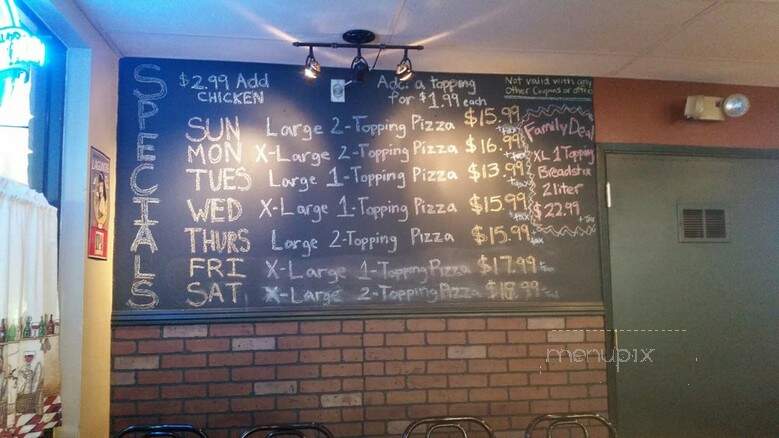 SPECIALS
$2.99 Add
CHICKEN
Add a topping
for $1.99 each
Not valid with any
Other Coupons or offers
SUN Large 2-Topping Pizza $15.99 +tax
MON X-Large 2-Topping Pizza $16.99 +tax
TUES Large 1-Topping Pizza $13.99 +tax
WED X-Large 1-Topping Pizza $15.99 +tax
THURS Large 2-Topping Pizza $15.99 +tax
FRI X-Large 1-Topping Pizza $17.99 +tax
SAT X-Large 2-Topping Pizza $18.99 +tax
Family Deal
XL 1 Topping
Breadstix
2 liter
$22.99 +tax
menupix